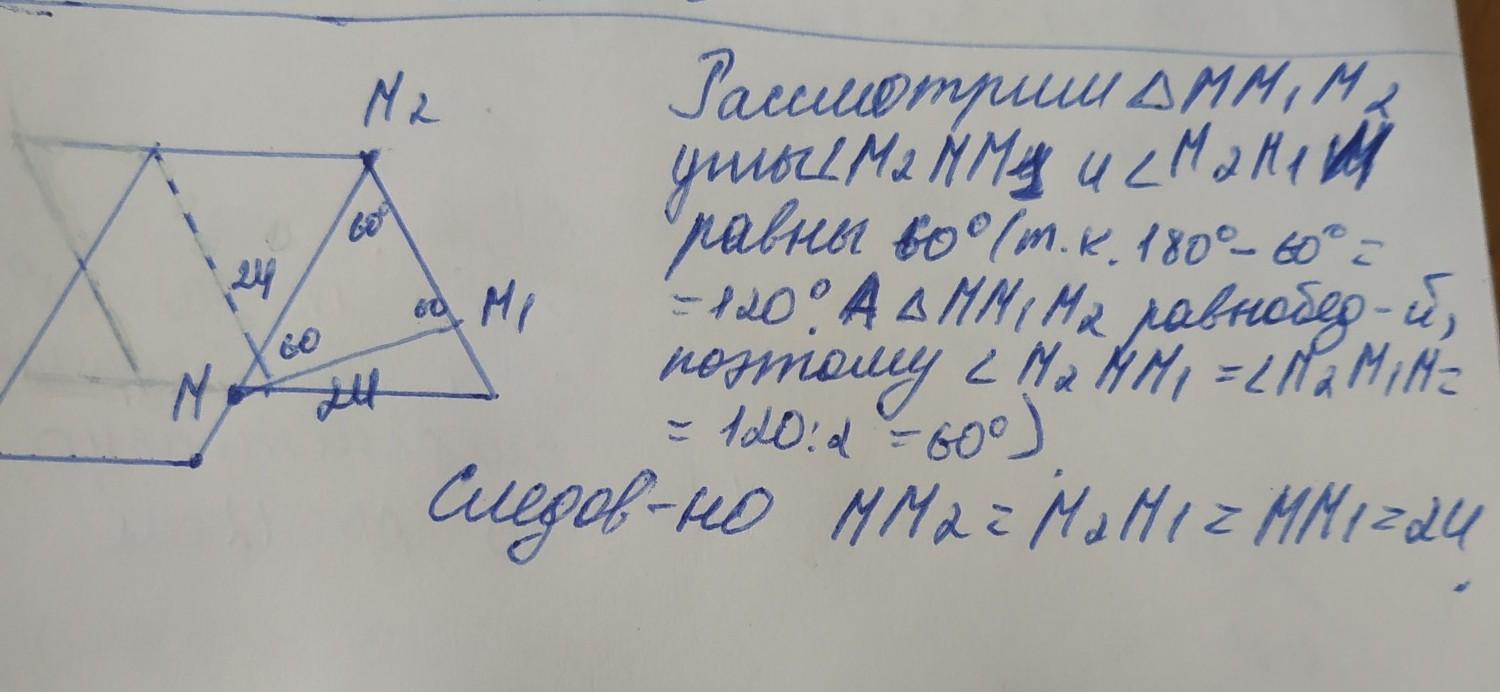 M2
60°
24
60
60
M1
M
24
Рассмотрим △ MM1M2
углы ∠M2MM1 и ∠M2M1M
равны 60° (т.к. 180° - 60° =
= 120°. А △ MM1M2 равнобед-й,
поэтому ∠M2MM1 = ∠M2M1M =
= 120:2 = 60°).
Следов-но MM2 = M2M1 = MM1 = 24